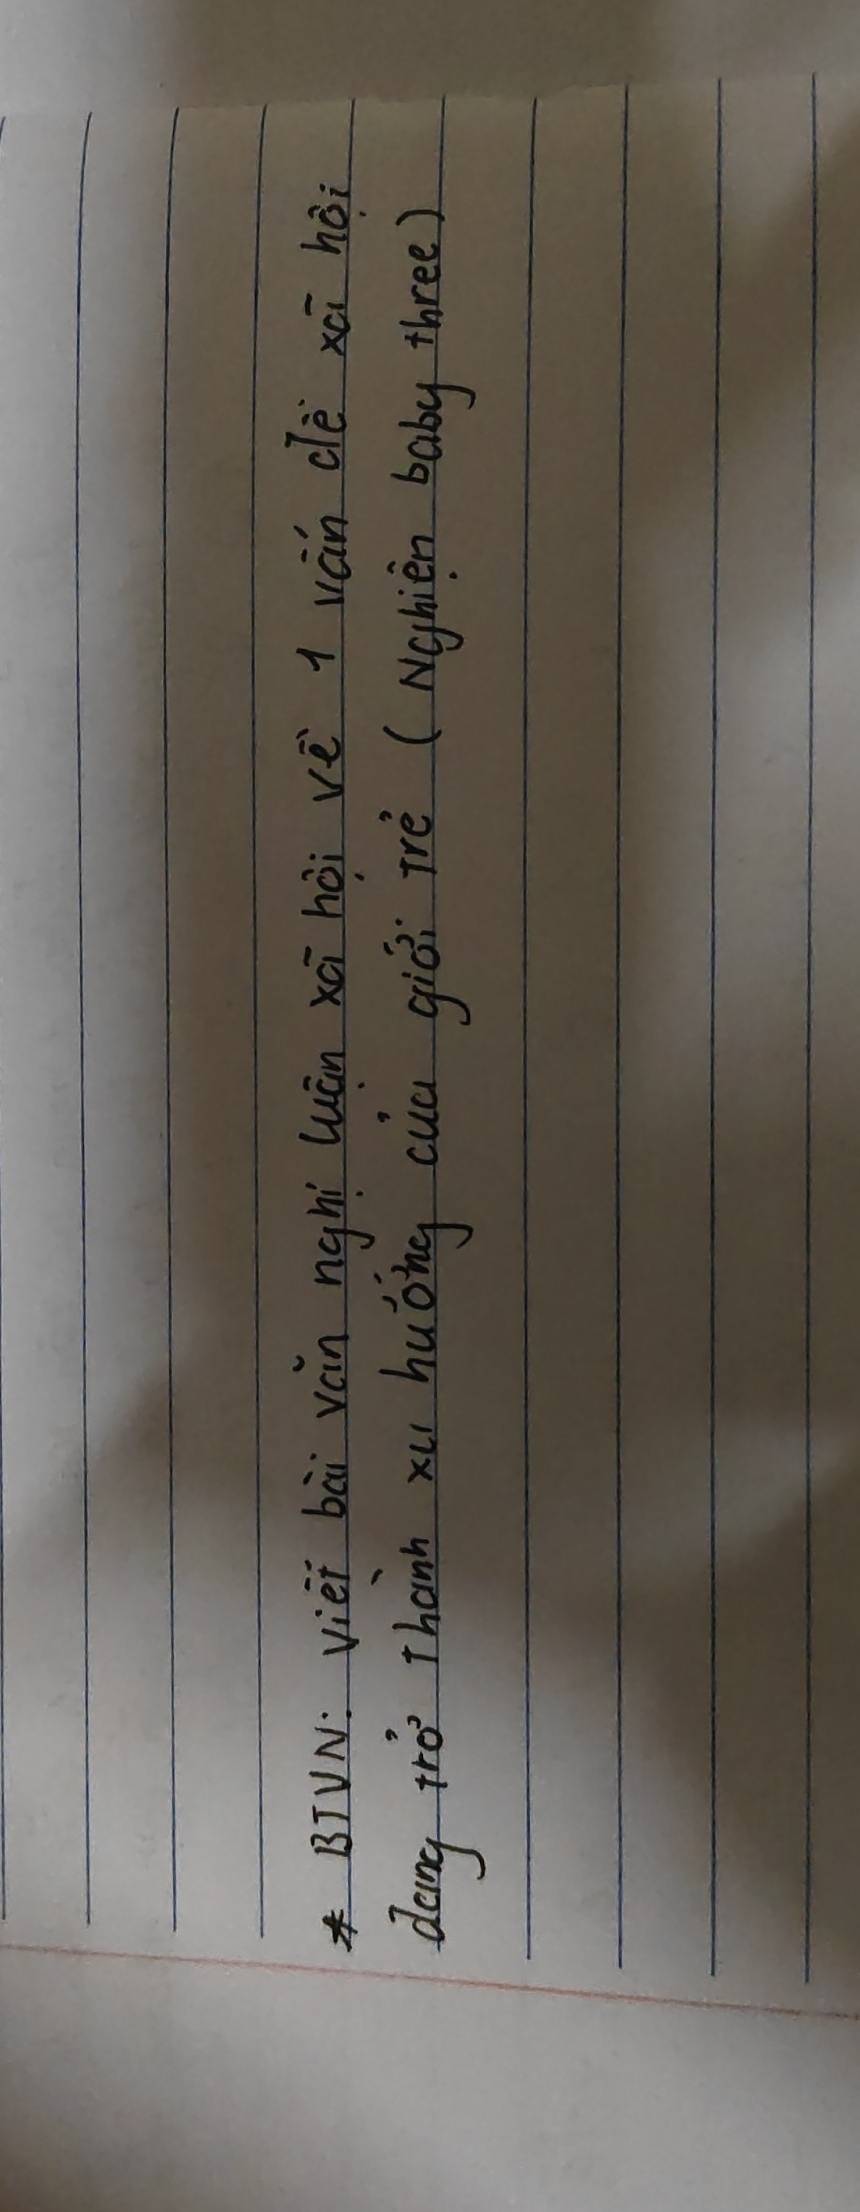 * BTVN: Viết bài văn nghị luận xã hội về 1 vấn đề xã hội
đang trở thành xu hướng của giới trẻ (Nghiện baby three)